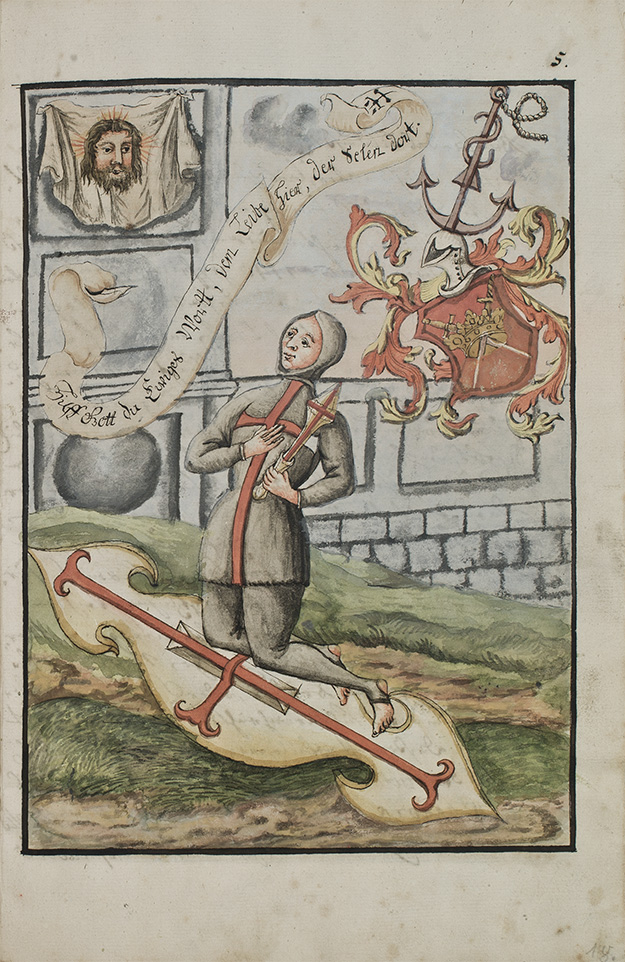 5.
Hilff Gott du Ewiges Wortt, dem Leibe hier, der Selen dort.